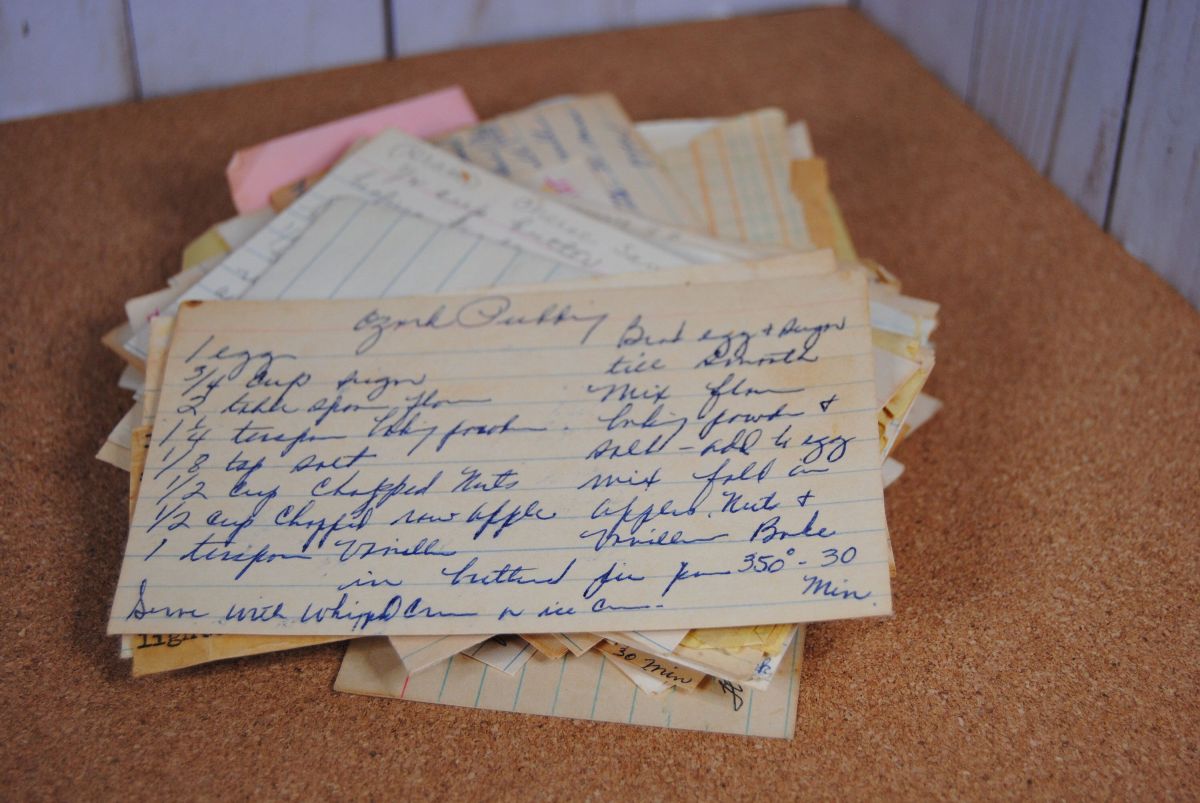 Ozark Pudding
1 egg
3/4 cup sugar
2 table spoon flour
1 1/4 teaspoon baking powder
1/8 tsp salt
1/2 cup chopped nuts
1/2 cup chopped raw apple
1 teaspoon vanilla
Beat egg & sugar
till smooth
Mix flour
baking powder &
salt - add to egg
mix fold in
apples, nuts &
vanilla Bake
in buttered pie pan 350° - 30
Min.
Serve with whipped cream or ice cream.
30 Min